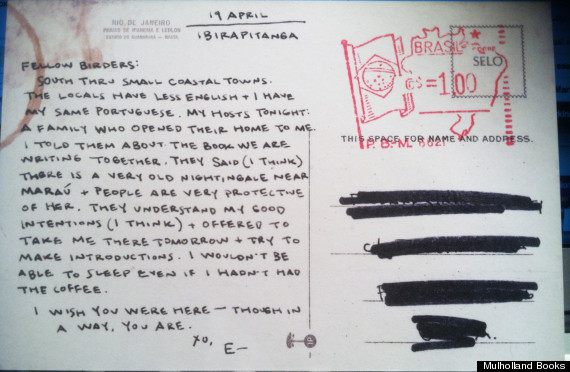 RIO DE JANEIRO
PRAIAS DE IPANEMA E LEBLON
19 APRIL
IBIRAPITANGA
FELLOW BIRDERS:
SOUTH THRU SMALL COASTAL TOWNS.
THE LOCALS HAVE LESS ENGLISH + I HAVE
MY SAME PORTUGUESE. MY HOSTS TONIGHT:
A FAMILY WHO OPENED THEIR HOME TO ME.
I TOLD THEM ABOUT THE BOOK WE ARE
WRITING TOGETHER. THEY SAID (I THINK)
THERE IS A VERY OLD NIGHTINGALE NEAR
MARAÚ + PEOPLE ARE VERY PROTECTIVE
OF HER. THEY UNDERSTAND MY GOOD
INTENTIONS (I THINK) + OFFERED TO
TAKE ME THERE TOMORROW + TRY TO
MAKE INTRODUCTIONS. I WOULDN'T BE
ABLE TO SLEEP EVEN IF I HADN'T HAD
THE COFFEE.
I WISH YOU WERE HERE — THOUGH IN
A WAY, YOU ARE.
XO,
E—
BRASIL
SELO
=1,00
P.B.M.
THIS SPACE FOR NAME AND ADDRESS.
Mulholland Books